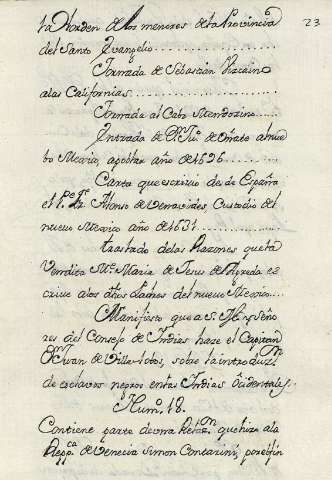 23
la Horden de los menores de la Provincia
del Santo Evangelio............
Jornada de Sebastian Vizcaino
a las Californias............
Jornada al Cabo Mendozino....
Entrada de Dn. Ju.º de Oñate al nue
bo Mexico, a poblar año de 1696......
Carta que escrivio desde España
el P.e Fr. Alonso de Venavides, Custodio del
nuevo Mexico año de 1631............
traslado de las Razones que la
Vendita M.e Maria de Jesus de Agreda es
crive a los dhos Padres del nuevo Mexico....
Manifiesto que a S. M. y Seño
res del Consejo de Indias hase el Capitan
Dn. Juan de Villa-lobos, sobre la introduz.on
de esclavos negros en las Indias Occidentales.
Num.º 18.
Contiene parte de una Relaz.on que hizo a la
Repp.ca de Venecia Simon Contarini, por el fin